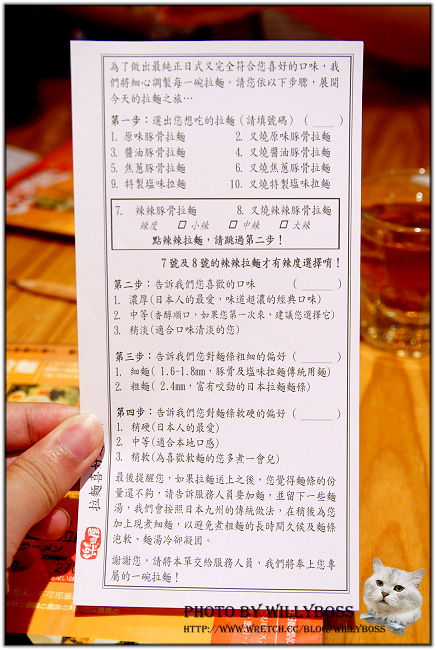 為了做出最純正日式又完全符合您喜好的口味，我
們將細心調製每一碗拉麵。請您依以下步驟，展開
今天的拉麵之旅…
第一步：選出您想吃的拉麵（請填號碼）（＿＿）
1. 原味豚骨拉麵 2. 叉燒豚骨拉麵
3. 醬油豚骨拉麵 4. 叉燒醬油豚骨拉麵
5. 焦蔥豚骨拉麵 6. 叉燒焦蔥豚骨拉麵
9. 特製塩味拉麵 10. 叉燒特製塩味拉麵
7. 辣辣豚骨拉麵 8. 叉燒辣辣豚骨拉麵
辣度 □ 小辣 □ 中辣 □ 大辣
點辣辣拉麵，請跳過第二步！
7號及8號的辣辣拉麵才有辣度選擇唷！
第二步：告訴我們您喜歡的口味（＿＿）
1. 濃厚(日本人的最愛，味道超濃的經典口味)
2. 中等(香醇順口，如果您第一次來，建議您選擇它)
3. 稍淡(適合口味清淡的您)
第三步：告訴我們您對麵條粗細的偏好（＿＿）
1. 細麵( 1.6-1.8mm，豚骨及塩味拉麵傳統用麵)
2. 粗麵( 2.4mm，富有咬勁的日本拉麵麵條)
第四步：告訴我們您對麵條軟硬的偏好（＿＿）
1. 稍硬(日本人的最愛)
2. 中等(適合本地口感)
3. 稍軟(為喜歡軟麵的您多煮一會兒)
最後提醒您，如果拉麵送上之後，您覺得麵條的份
量還不夠，請告訴服務人員要加麵，並留下一些麵
湯，我們會按照日本九州的傳統做法，在稍後為您
加上現煮細麵，以避免煮粗麵的長時間久候及麵條
泡軟、麵湯冷卻凝固。
謝謝您，請將本單交給服務人員，我們將奉上您專
屬的一碗拉麵！
PHOTO BY WILLYBOSS
HTTP://WWW.WRETCH.CC/BLOG/WILLYBOSS